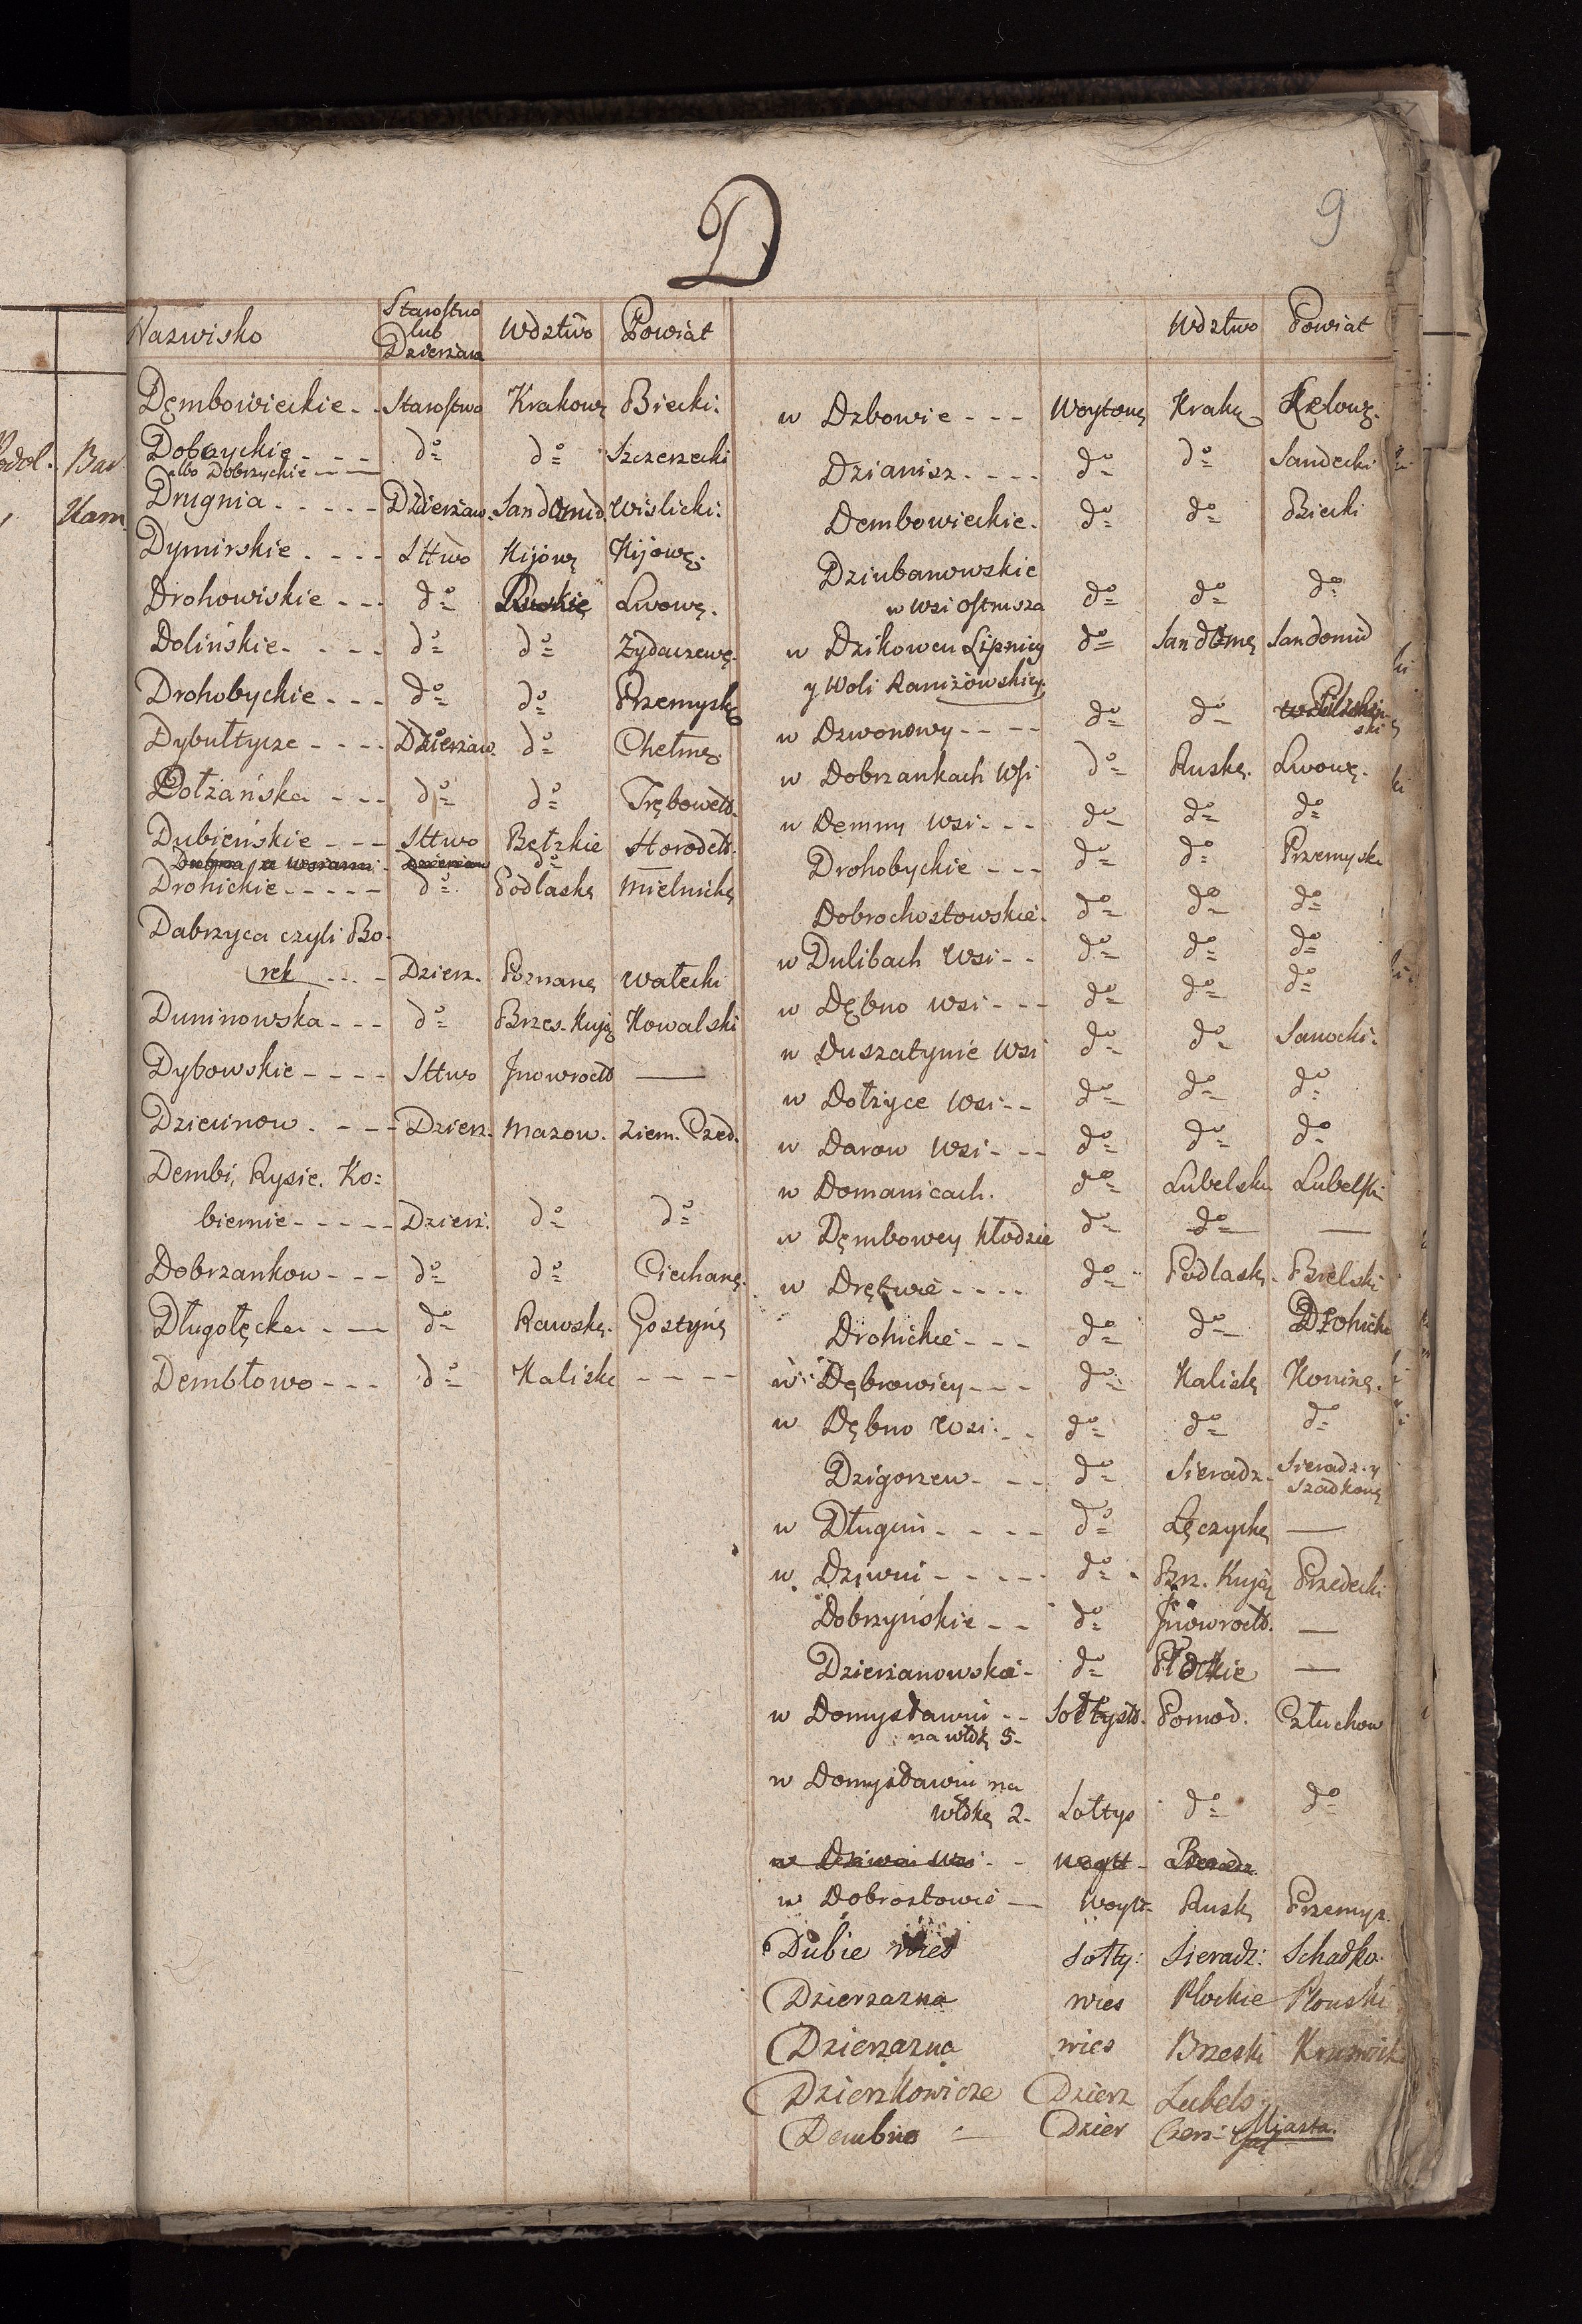 9
D
Nazwisko Starostwo lub Dzierżawa Wdztwo Powiat
Dęmbowieckie - - Starostwo Krakowę Biecki:
Dobczyckie - - - d° d° Szczerzecki
albo Dobrzyckie - -
Drugnia - - - - - Dzierżaw. Sandomid. Wislicki:
Dymirskie - - - - Sttwo Kijowę Kijowę.
Drohowiskie - - - d° Ruskię Lwowę.
Dolińskie - - - - d° d° Żydaczewę.
Drohobyckie - - - d° d° Przemyskę
Dybułtycze - - - - Dzierżaw. d° Chełmę.
Dołżańska - - - d° d° Trębowełs.
Dubieńskie - - - Sttwo Bełzkie Horodełs.
Drohickie - - - - - d° Podlaskę Mielnickę
Dabrzyca czyli Bo-
rek - - - - Dzierz. Poznanę Wałecki
Duninowska - - - d° Brzes. Kują Kowalski
Dybowskie - - - - Sttwo Jnowrocł —
Dziecinow - - - - Dzierz. Mazow. Ziem. Czed.
Dembi, Rysie. Ko=
biernie - - - - - Dzierż. d° d°
Dobrzankow - - - d° d° Ciechanę.
Długołęcka - - - d° Rawskę. Gostynę
Dembłowo - - - d° Kaliskę - - - -
Wdztwo Powiat
w Dzbowie - - - Woytowę Krakę Xelowę.
Dzianisz - - - - d° d° Sandecki
Dembowieckie. d° d° Biecki
Dziubanowskie
w wsi Ostrusza d° d° d°
w Dzikowcu Lipnicy d° Sandomę Sandomid
y Woli Raniżowskiey.
w Dzwonowy - - - - d° d° Pilznęń-
ski
w Dobrzankach Wsi d° Ruskę. Lwowę.
w Demny Wsi - - - d° d° d°
Drohobyckie - - - d° d° Przemyskę
Dobrochostowskie. d° d° d°
w Dulibach Wsi - - d° d° d°
w Dębno Wsi - - - d° d° d°
w Duszatynie Wsi d° d° Sanocki:
w Dołżyce Wsi - - d° d° d°
w Darow Wsi - - - d° d° d°
w Domanicach. d° Lubelskę Lubelski
w Dęmbowey Kłodzie d° d° —
w Drętwie - - - - d° Podlaskę. Bielski
Drohickie - - - d° d° Drohicki
w Dębrowicy - - - d° Kaliskę Koninę.
w Dębno Wsi - - d° d° d°
Dzigorzew - - - d° Sieradz. Sieradz. y
Szadkowę
w Długim - - - - d° Łęczyckę —
w Dziwni - - - - - d° Brz. Kują Przedecki
Dobrzyńskie - - d° Jnowrocł. —
Dzierżanowska - d° Płockie —
w Domysławiu - - Sołtyst. Pomod. Człuchow
na włokę 5-
w Domysławiu na
włokę 2- Sołtys d° d°
w Dziwni Wsi - - Woytt -
w Dobrostowie — Woyt Ruskę Przemys.
Dubie wies Sołty: Sieradz: Schadko.
Dzierzazna wies Plockie Plonski
Dzierzazna wies Brzeski
Dzierzkowicze Dzierz Lubels.
Dembno Dzier Czers: Miasta.